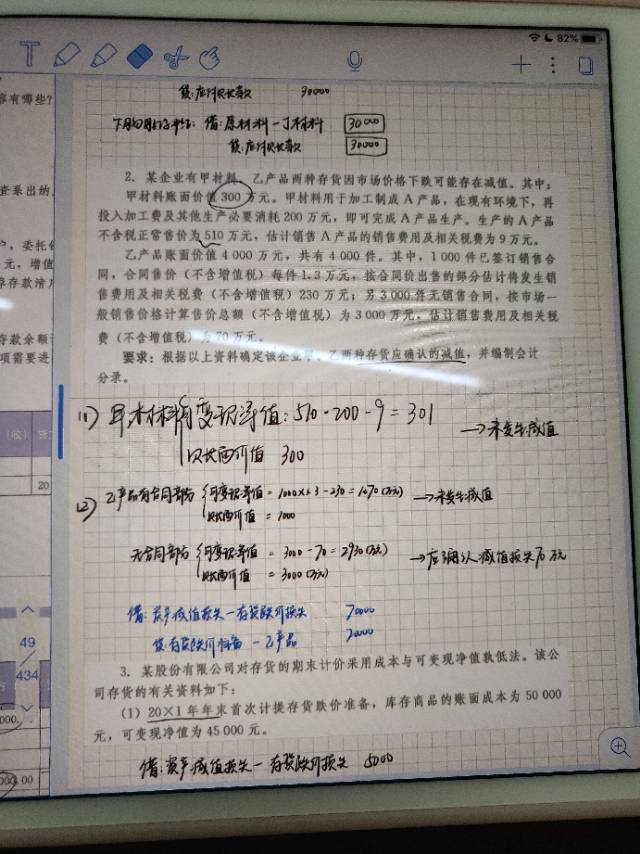 82%
贷:应付账款 30000
下月初用红字冲: 借:原材料—丁材料 30000
贷:应付账款 30000
2. 某企业有甲材料、乙产品两种存货因市场价格下跌可能存在减值。其中:
甲材料账面价值 300 万元。甲材料用于加工制成 A 产品,在现有环境下,再
投入加工费及其他生产必要消耗 200 万元,即可完成 A 产品生产。生产的 A 产品
不含税正常售价为 510 万元,估计销售 A 产品的销售费用及相关税费为 9 万元。
乙产品账面价值 4 000 万元,共有 4 000 件。其中,1 000 件已签订销售合
同,合同售价(不含增值税)每件 1.3 万元,按合同价出售的部分估计将发生销
售费用及相关税费(不含增值税)230 万元;另 3 000 件无销售合同,按市场一
般销售价格计算售价总额(不含增值税)为 3 000 万元,估计销售费用及相关税
费(不含增值税)为 70 万元。
要求:根据以上资料确定该企业甲、乙两种存货应确认的减值,并编制会计
分录。
(1) 甲材料 可变现净值:510-200-9=301 →未发生减值
账面价值 300
(2) 乙产品有合同部分 可变现净值=1000×1.3-230=1070(万元) →未发生减值
账面价值=1000
无合同部分 可变现净值=3000-70=2930(万元) →应确认减值损失70万元
账面价值=3000(万元)
借:资产减值损失—存货跌价损失 70000
贷:存货跌价准备—乙产品 70000
3. 某股份有限公司对存货的期末计价采用成本与可变现净值孰低法。该公
司存货的有关资料如下:
(1) 20×1 年年末首次计提存货跌价准备,库存商品的账面成本为 50 000
元,可变现净值为 45 000 元。
借:资产减值损失—存货跌价损失 5000
有哪些?
查乘出的
委托
元,增值
存款余额
项需要进
20
49
434
000.
000.00